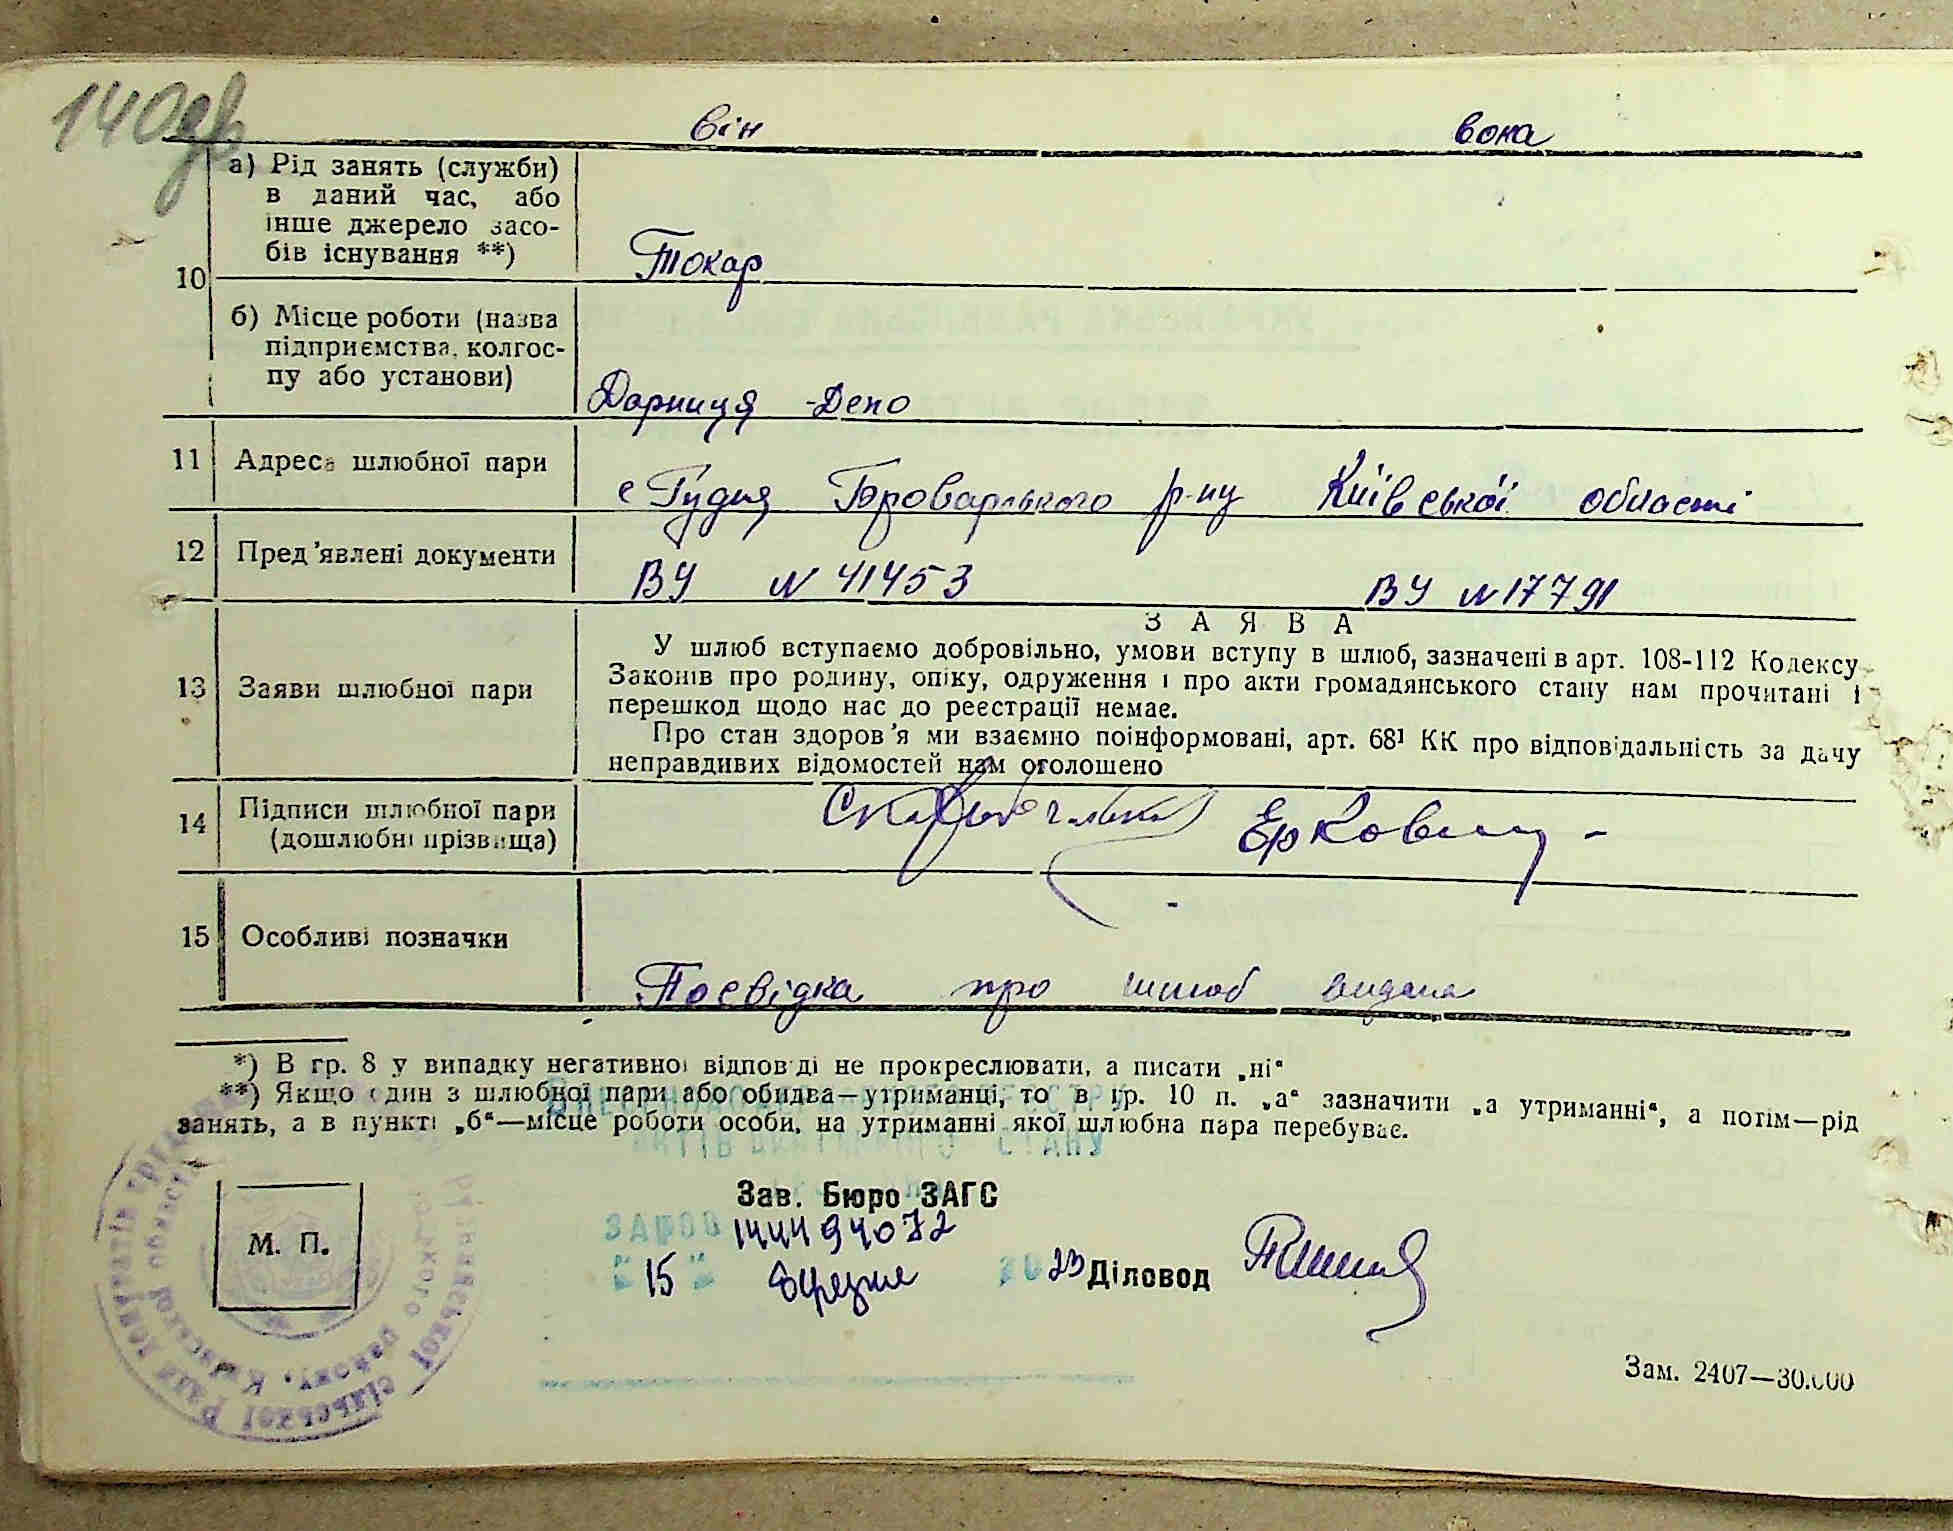 140
він вона
10
а) Рід занять (служби)
в даний час, або
інше джерело засо-
бів існування **)
Токар
б) Місце роботи (назва
підприємства, колгос-
пу або установи)
Дарниця -Депо
11 Адреса шлюбної пари
с Гудня Броварського р-ну Київської області
12 Пред'явлені документи
ВУ N 41453 ВУ N 17791
13 Заяви шлюбної пари
ЗАЯВА
У шлюб вступаємо добровільно, умови вступу в шлюб, зазначені в арт. 108-112 Кодексу
Законів про родину, опіку, одруження і про акти громадянського стану нам прочитані і
перешкод щодо нас до реєстрації немає.
Про стан здоров'я ми взаємно поінформовані, арт. 68¹ КК про відповідальність за дачу
неправдивих відомостей нам оголошено
14 Підписи шлюбної пари
(дошлюбні прізвища)
15 Особливі позначки
Посвідка про шлюб видана
*) В гр. 8 у випадку негативної відповіді не прокреслювати, а писати „ні“
**) Якщо один з шлюбної пари або обидва—утриманці, то в гр. 10 п. „а“ зазначити „а утриманні“, а потім—рід
занять, а в пункті „б“—місце роботи особи, на утриманні якої шлюбна пара перебуває.
АКТІВ СТАНУ
М. П.
Зав. Бюро ЗАГС
15 березня 2023
Діловод
Зам. 2407—30.000